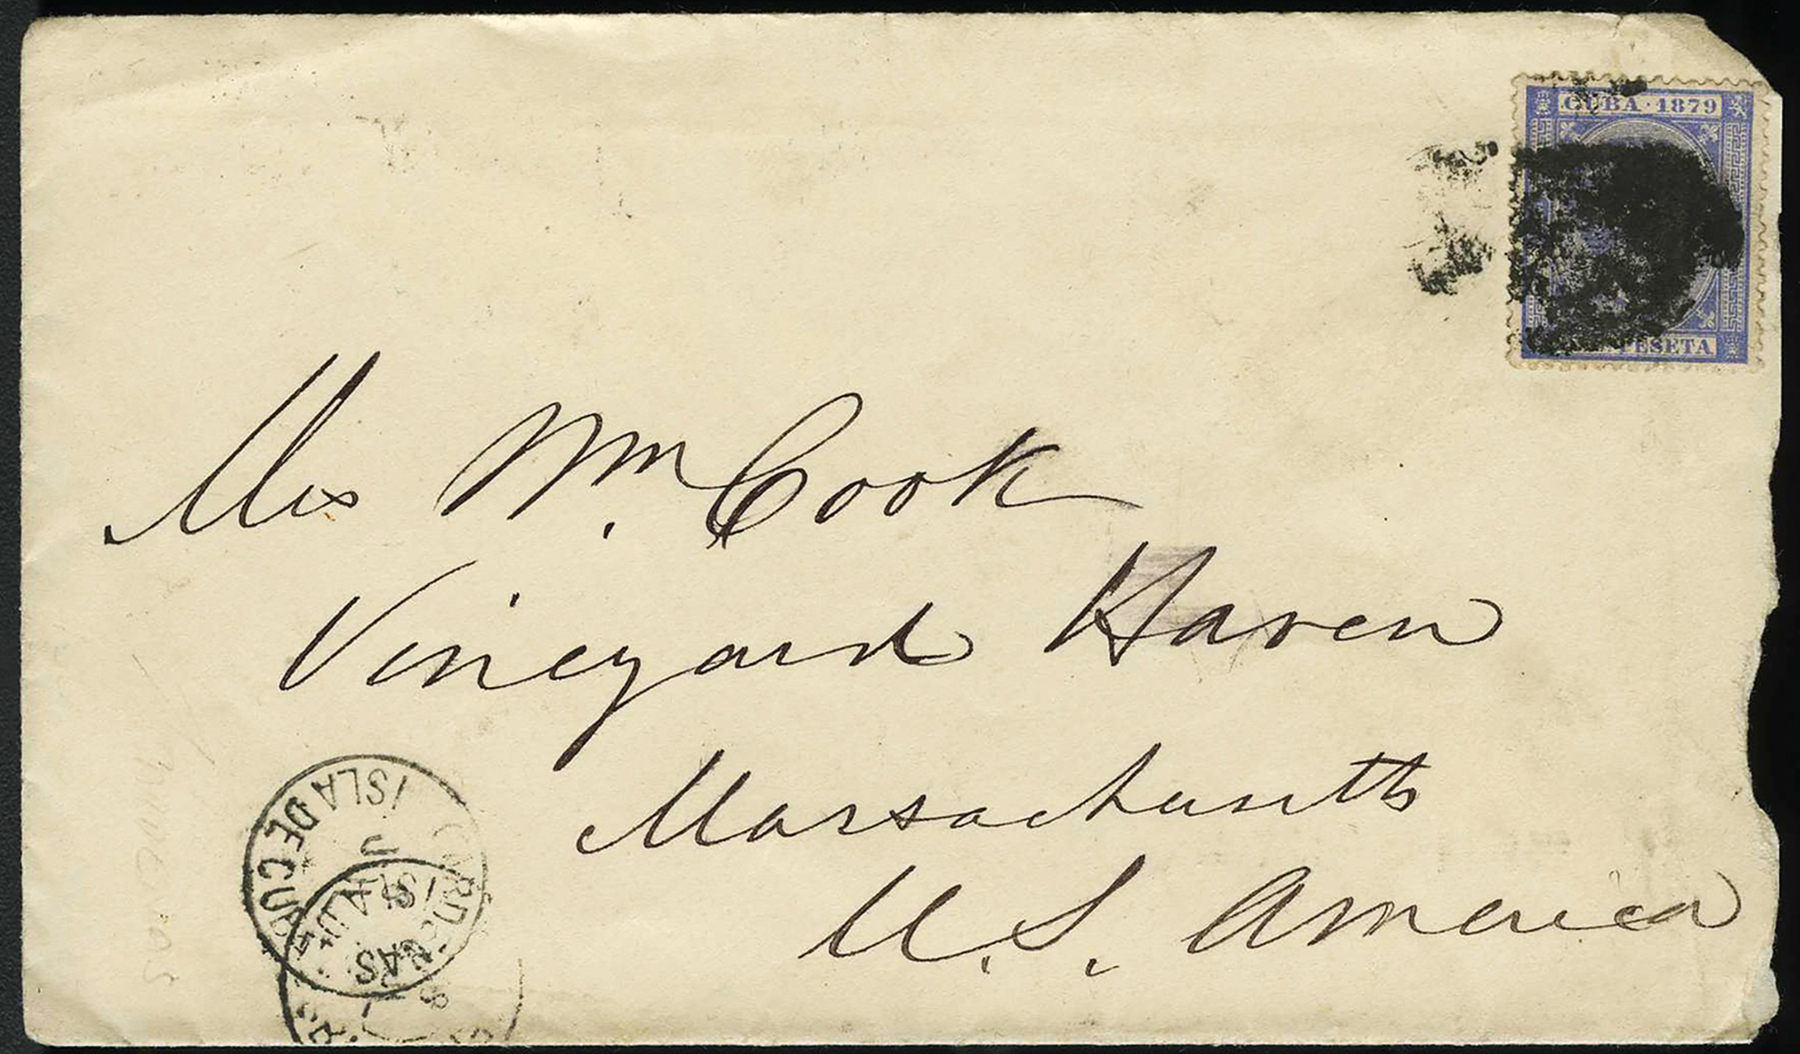 CUBA · 1879
PESETA
Mrs Wm. Cook
Vineyard Haven
Massachusetts
U. S. America
ISLA DE CUBA
CARDENAS
ISLA DE
8